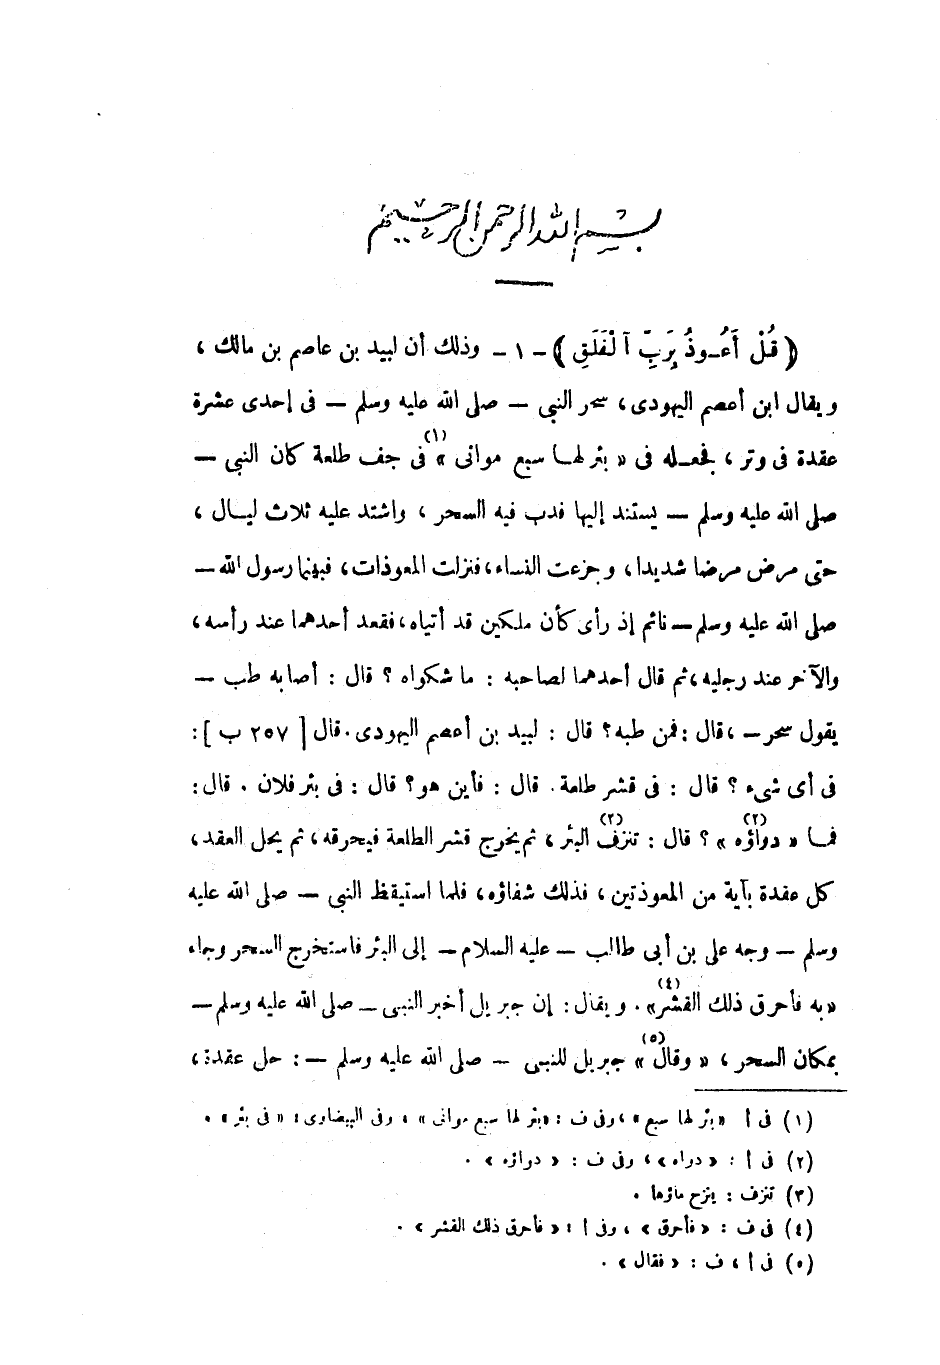 بسم الله الرحمن الرحيم
( قُلْ أَعُـوذُ بِرَبِّ آلْفَلَقِ ) - ١ - وذلك أن لبيد بن عاصم بن مالك ،
ويقال ابن أعصم اليهودى ، سحر النبى — صلى الله عليه وسلم — فى إحدى عشرة
عقدة فى وتر ، فجعـله فى « بئر لهـا سبع موانى » (١) فى جف طلعة كان النبى —
صلى الله عليه وسلم — يستند إليها فدب فيه السحر ، واشتد عليه ثلاث ليـال ،
حتى مرض مرضا شديدا ، وجزعت النساء ، فنزلت المعوذات ، فبينما رسول الله —
صلى الله عليه وسلم — نائم إذ رأى كأن ملكين قد أتياه ، فقعد أحدهما عند رأسه ،
والآخر عند رجليه ، ثم قال أحدهما لصاحبه : ما شكواه ؟ قال : أصابه طب —
يقول سحر — ، قال : فمن طبه ؟ قال : لبيد بن أعصم اليهودى . قال [ ٢٥٧ ب ] :
فى أى شىء ؟ قال : فى قشر طلعة . قال : فأين هو ؟ قال : فى بئر فلان . قال :
فمـا « دواؤه » (٢) ؟ قال : تنزف (٣) البئر ، ثم يخرج قشر الطلعة فيحرقه ، ثم يحل العقد ،
كل عقدة بآية من المعوذتين ، فذلك شفاؤه ، فلما استيقظ النبى — صلى الله عليه
وسلم — وجه على بن أبى طالب — عليه السلام — إلى البئر فاستخرج السحر وجاء
« به فأحرق ذلك القشر » (٤) . ويقال : إن جبريل أخبر النبى — صلى الله عليه وسلم —
بمكان السحر ، « وقال » (٥) جبريل للنبى — صلى الله عليه وسلم — : حل عقدة ،
(١) فى أ « بئر لها سبع » ، وفى ف : « بئر لها سبع موانى » ، وفى البيضاوى : « فى بئر » .
(٢) فى أ : « دراه » ، وفى ف : « دواؤه » .
(٣) تنزف : ينزح ماؤها .
(٤) فى ف : « فأحرق » ، وفى أ : « فأحرق ذلك القشر » .
(٥) فى أ ، ف : « فقال » .